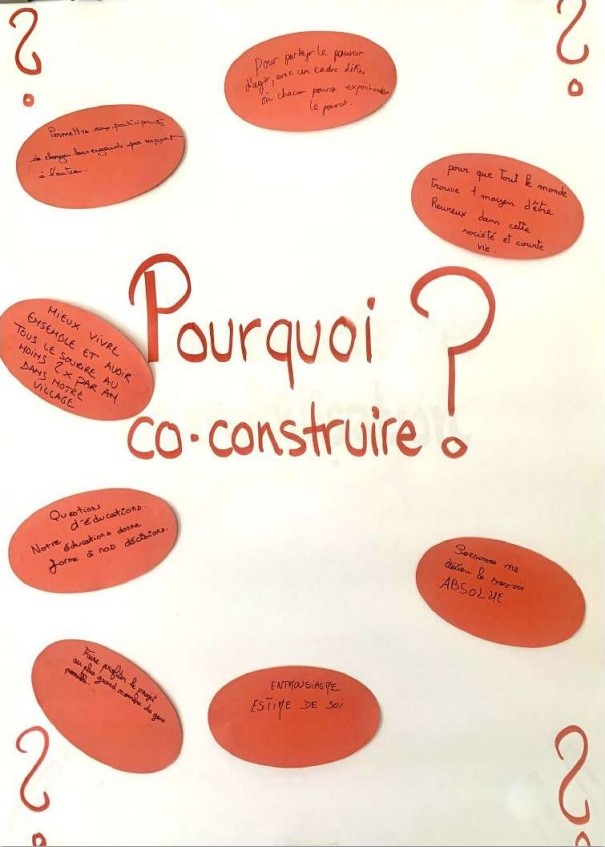 ?
?
Pour partager le pouvoir
d'agir, avec un cadre défini
où chacun pourra expérimenter
le pouvoir.
Permettre aux participants
de changer leurs regards par rapport
à l'autre.
pour que tout le monde
trouve 1 moyen d'être
heureux dans cette
société et courte
vie.
MIEUX VIVRE
ENSEMBLE ET AVOIR
TOUS LE SOURIRE AU
MOINS 2 X PAR AN
DANS NOTRE
VILLAGE
Pourquoi ?
co-construire
Questions
d'éducations.
Notre éducations donne
forme à nos décisions.
Personne ne
détien le
ABSOLUE
Faire profiter le projet
au plus grand nombre de gens
possible
ENTHOUSIASME
ESTIME DE SOI
?
?